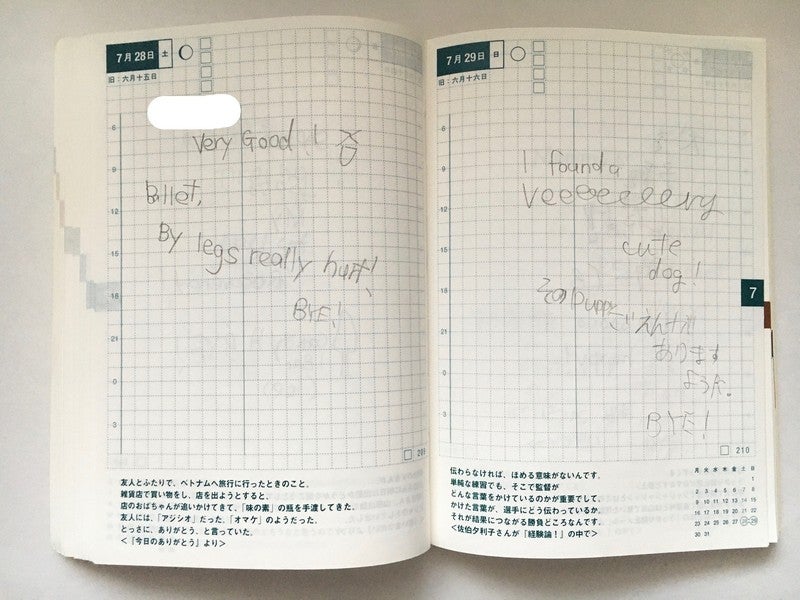 7月28日 土
旧：六月十五日
6
Very Good!!
9
Billet,
12
By legs really hurt!
15
18
BYE!
21
0
3
友人とふたりで、ベトナムへ旅行に行ったときのこと。
雑貨店で買い物をし、店を出ようとすると、
店のおばちゃんが追いかけてきて、「味の素」の瓶を手渡してきた。
友人には、「アジシオ」だった。「オマケ」のようだった。
とっさに、ありがとう、と言っていた。
＜『今日のありがとう』より＞
7月29日 日
旧：六月十六日
6
I found a
9
Veeeeeeeery
12
cute
dog!
15
7
18
そのpuppy
21
あります
0
BYE!
3
210
伝わらなければ、ほめる意味がないんです。
単純な練習でも、そこで監督が
どんな言葉をかけているのかが重要でして、
かけた言葉が、選手にどう伝わっているか。
それが結果につながる勝負どころなんです。
＜佐伯夕利子さんが『経験論！』の中で＞
月 火 水 木 金 土 日
1
2 3 4 5 6 7 8
9 10 11 12 13 14 15
16 17 18 19 20 21 22
23 24 25 26 27 28 29
30 31